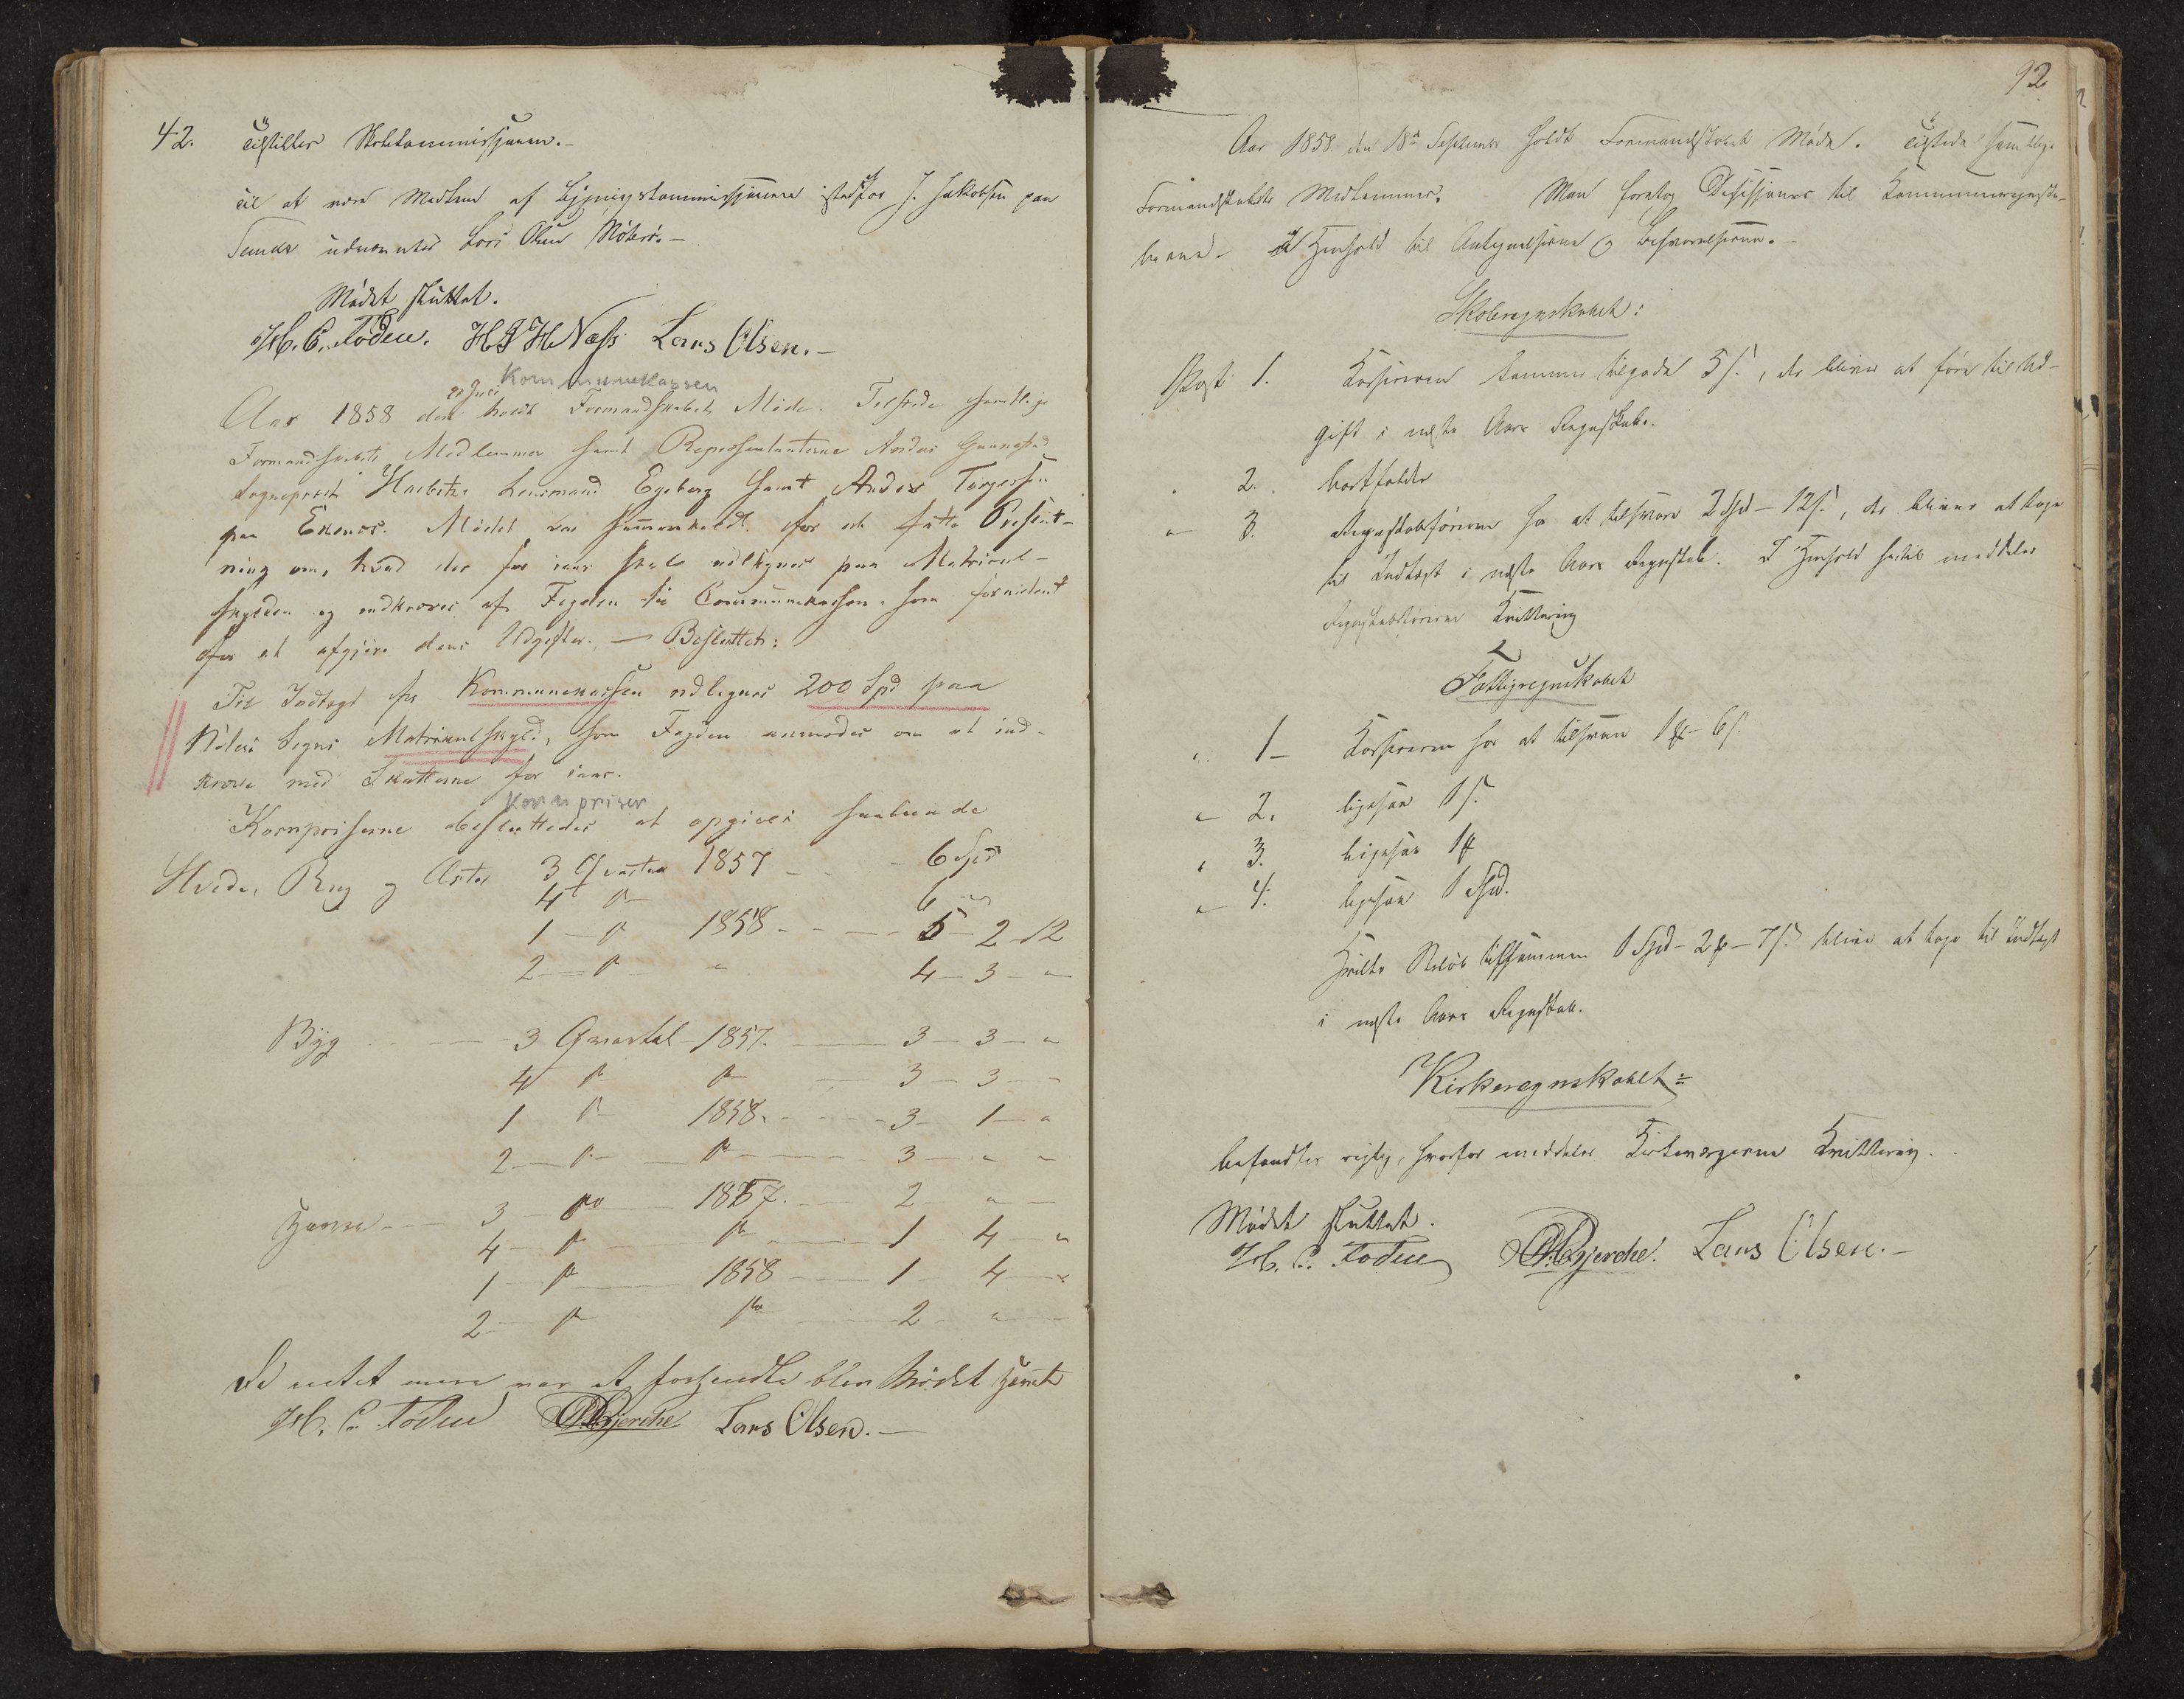 42. Tilstilles Skolekommissionen.-
Til at være Medlem af Ligningskommissjonen istedfor J. Jakobsen paa
udnævntes Lars Olsen Nøterø.-
Mødet sluttet.
H. C. Foden. H J H Næss Lars Olsen.-
Kommunekassen
Aar 1858 den holdt Formandskabet Møde. Tilstede samtlige
Formandskabets Medlemmer samt Repræsentanterne Anders Gunnestad
Sogneprest Lensmand Egeberg samt Anders Torgersen
paa Ekenes. Mødet var sammenkaldt for at fatte Beslut-
ning om, hvad der for iaar skal udlignes paa Matricul-
skylden og indkræves af Fogden til Communekassen, som fornødent
for at afgjøre dens Udgifter. - Besluttet:
Til Indtægt for Kommunekassen udlignes 200 Spd paa
Nøterø Sogns Matriculskyld, som Fogden anmodes om at ind-
kræve med Skatterne for iaar.
Kornpriser
Kornpriserne besluttedes at opgives saaledes
Hvede, Rug og Erter 3 Qvartal 1857 - - 6 Spd
4 do 6 "
1 - do 1858 - - - 5 - 2 - 12
2 - do " 4 - 3 - "
Byg - - 3 Qvartal 1857. - 3 - 3 - "
4 do do - 3 - 3 -
1 do 1858. - - - 3 - 1 - "
2 - do - do - - 3 - " - "
Havre - - 3 - do - 1857. - 2 " -
4 - do - do - 1 4 - "
1 - do - 1858 - 1 4 - "
2 - do do - 2 - " -
Da intet mere var at forhandle blev Mødet hævet
H. C. Foden Bjerche Lars Olsen.-
92.
Aar 1858 den 18de September holdt Formandskabet Møde. Tilstede samtlige
Formandskabets Medlemmer. Man foretog Desisjoner til Kommuneregnska-
berne. I Henhold til Antegnelserne og Besvarelserne.-
Skoleregnskabet:
Post 1. Kassereren kommer tilgode 5 s., der bliver at føre til Ud-
gift i næste Aars Regnskab.
" 2. bortfalder
" 3. Regnskabsføreren har at tilsvare 2 Spd - 12 s., der bliver at tage
til Indtægt i næste Aars Regnskab. I Henhold hertil meddeles
Regnskabsføreren Kvittering
Fattigregnskabet
" 1 - Kassereren har at tilsvare 1 ort - 6 s.
" 2. ligesaa 1 s.
" 3. ligesaa 1 ort
" 4. ligesaa 1 Spd.
Hvilke Beløb tilsammen 1 Spd - 2 ort - 7 s. bliver at tage til Indtægt
i næste Aars Regnskab.
Kirkeregnskabet:
befandtes rigtig, hvorfor meddeles Kirkeværgerne Kvittering.
Mødet sluttet.
H. C. Foden Bjerche. Lars Olsen.-